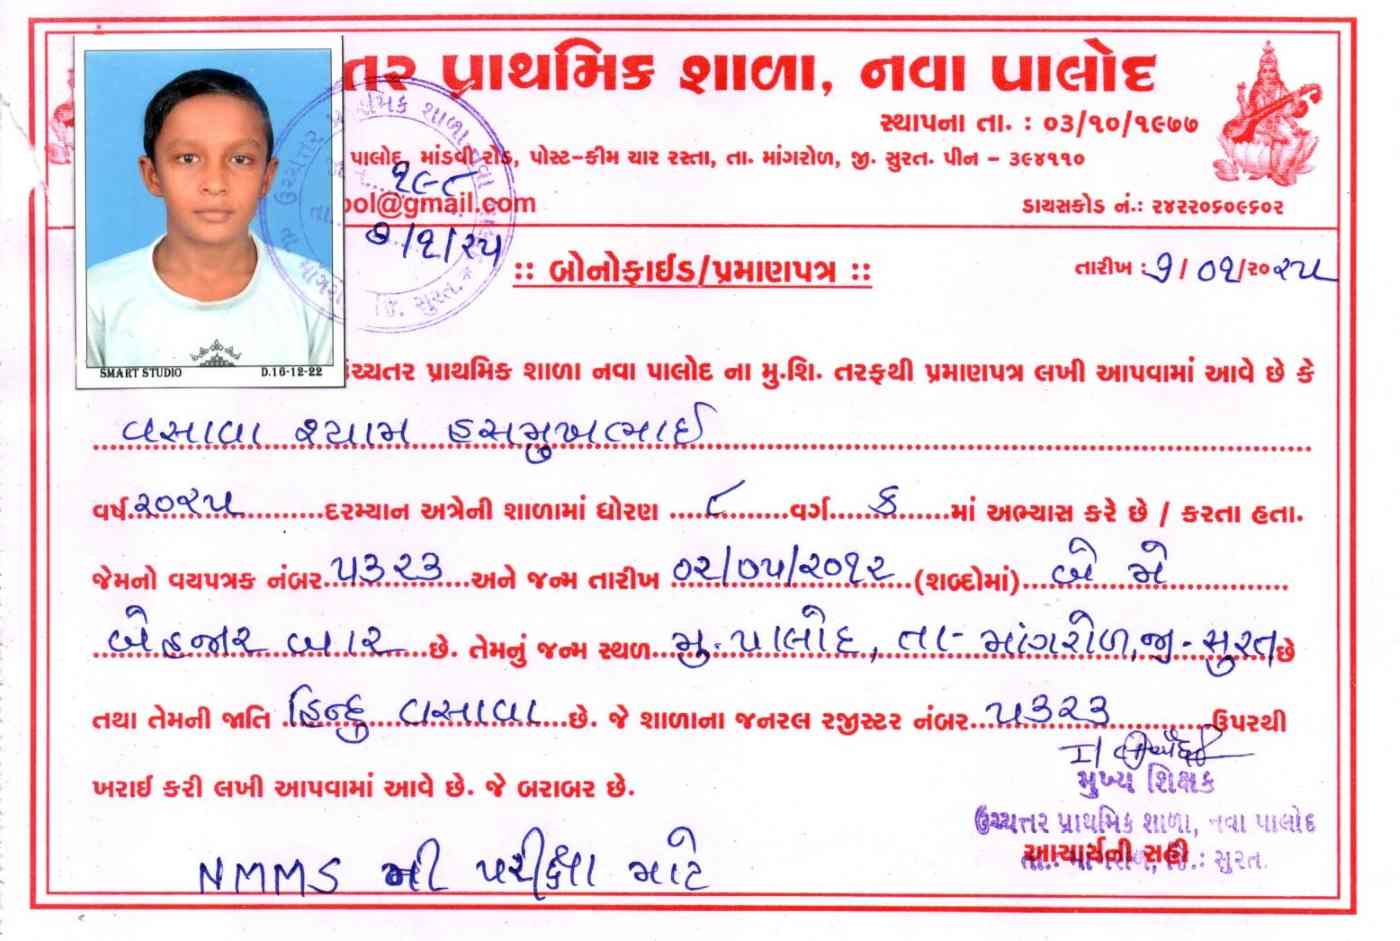 તર પ્રાથમિક શાળા, નવા પાલોદ
સ્થાપના તા. : ૦૩/૧૦/૧૯૭૭
પાલોદ, માંડવી રોડ, પોસ્ટ-કીમ ચાર રસ્તા, તા. માંગરોળ, જી. સુરત. પીન - ૩૯૪૧૧૦
ool@gmail.com
ડાયસકોડ નં.: ૨૪૨૨૦૬૦૯૬૦૨
૧૯૮
૭/૧/૨૫
:: બોનોફાઈડ/પ્રમાણપત્ર ::
તારીખ : ૭/ ૦૧/૨૦૨૫
SMART STUDIO D.16-12-22
ઉચ્ચતર પ્રાથમિક શાળા નવા પાલોદ ના મુ.શિ. તરફથી પ્રમાણપત્ર લખી આપવામાં આવે છે કે
વસાવા શ્યામ હસમુખભાઈ
વર્ષ ૨૦૨૫ દરમ્યાન અત્રેની શાળામાં ધોરણ ૮ વર્ગ ક માં અભ્યાસ કરે છે / કરતા હતા.
જેમનો વયપત્રક નંબર ૫૩૨૩ અને જન્મ તારીખ ૦૨/૦૫/૨૦૧૨ (શબ્દોમાં) બે મે
બેહજાર બાર છે. તેમનું જન્મ સ્થળ મુ. પાલોદ, તા- માંગરોળ, જી- સુરત છે
તથા તેમની જાતિ હિન્દુ વસાવા છે. જે શાળાના જનરલ રજીસ્ટર નંબર ૫૩૨૩ ઉપરથી
ખરાઈ કરી લખી આપવામાં આવે છે. જે બરાબર છે.
મુખ્ય શિક્ષક
ઉચ્ચત્તર પ્રાથમિક શાળા, નવા પાલોદ
આચાર્યની સહી
તા. માંગરોળ, જિ.: સુરત.
NMMS ની પરીક્ષા માટે